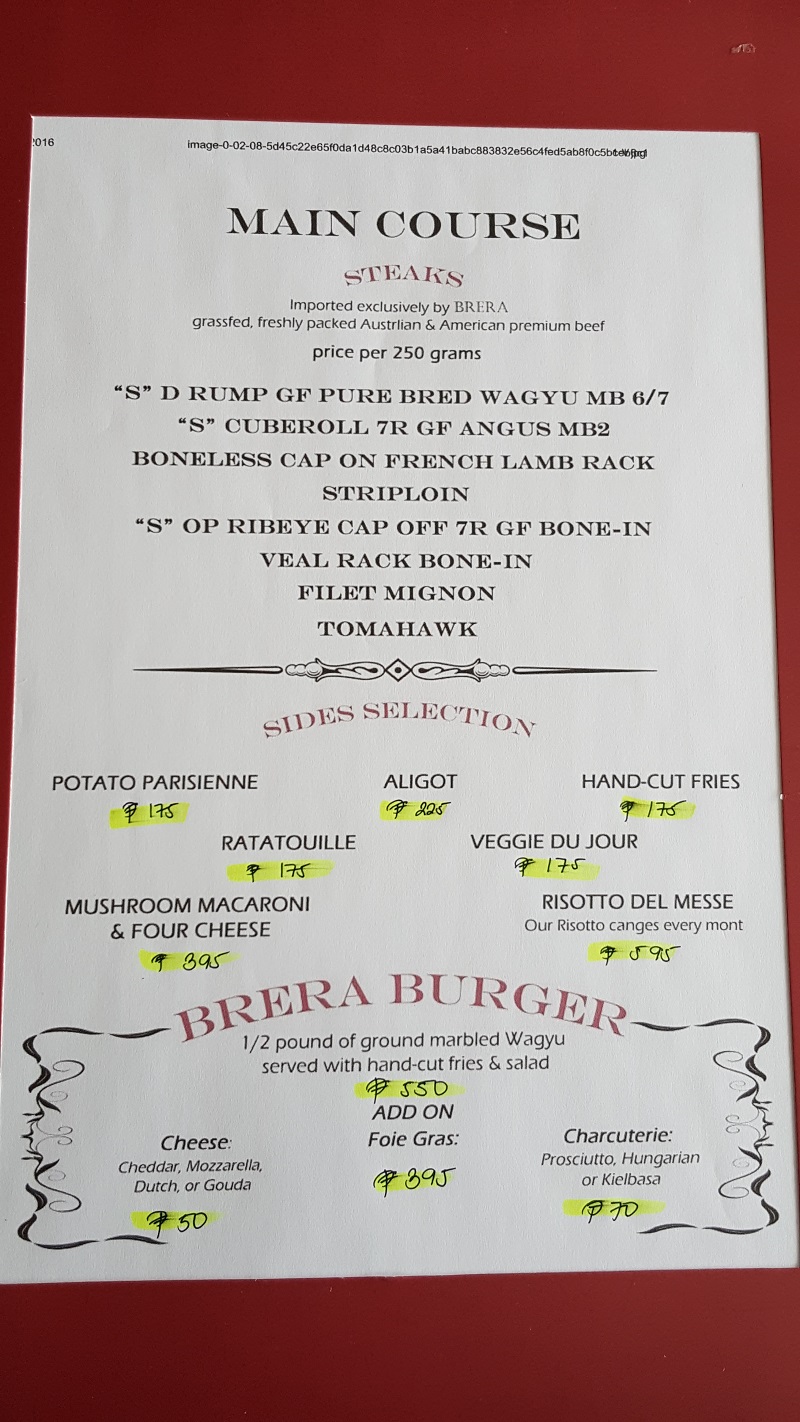 2016
image-0-02-08-5d45c22e65f0da1d48c8c03b1a5a41babc883832e56c4fed5ab8f0c5b
MAIN COURSE
STEAKS
Imported exclusively by BRERA
grassfed, freshly packed Austrlian & American premium beef
price per 250 grams
“S” D RUMP GF PURE BRED WAGYU MB 6/7
“S” CUBEROLL 7R GF ANGUS MB2
BONELESS CAP ON FRENCH LAMB RACK
STRIPLOIN
“S” OP RIBEYE CAP OFF 7R GF BONE-IN
VEAL RACK BONE-IN
FILET MIGNON
TOMAHAWK
SIDES SELECTION
POTATO PARISIENNE ALIGOT HAND-CUT FRIES
₱ 175 ₱ 225 ₱ 175
RATATOUILLE VEGGIE DU JOUR
₱ 175 ₱ 175
MUSHROOM MACARONI
& FOUR CHEESE
₱ 395
RISOTTO DEL MESSE
Our Risotto canges every mont
₱ 595
BRERA BURGER
1/2 pound of ground marbled Wagyu
served with hand-cut fries & salad
₱ 550
ADD ON
Cheese:
Cheddar, Mozzarella,
Dutch, or Gouda
₱ 50
Foie Gras:
₱ 395
Charcuterie:
Prosciutto, Hungarian
or Kielbasa
₱ 70